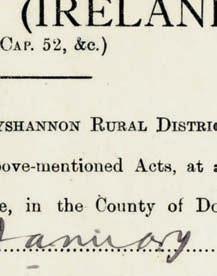 (IRELAN
CAP. 52, &c.)
YSHANNON RURAL DISTRIC
ove-mentioned Acts, at a
e, in the County of Do
January